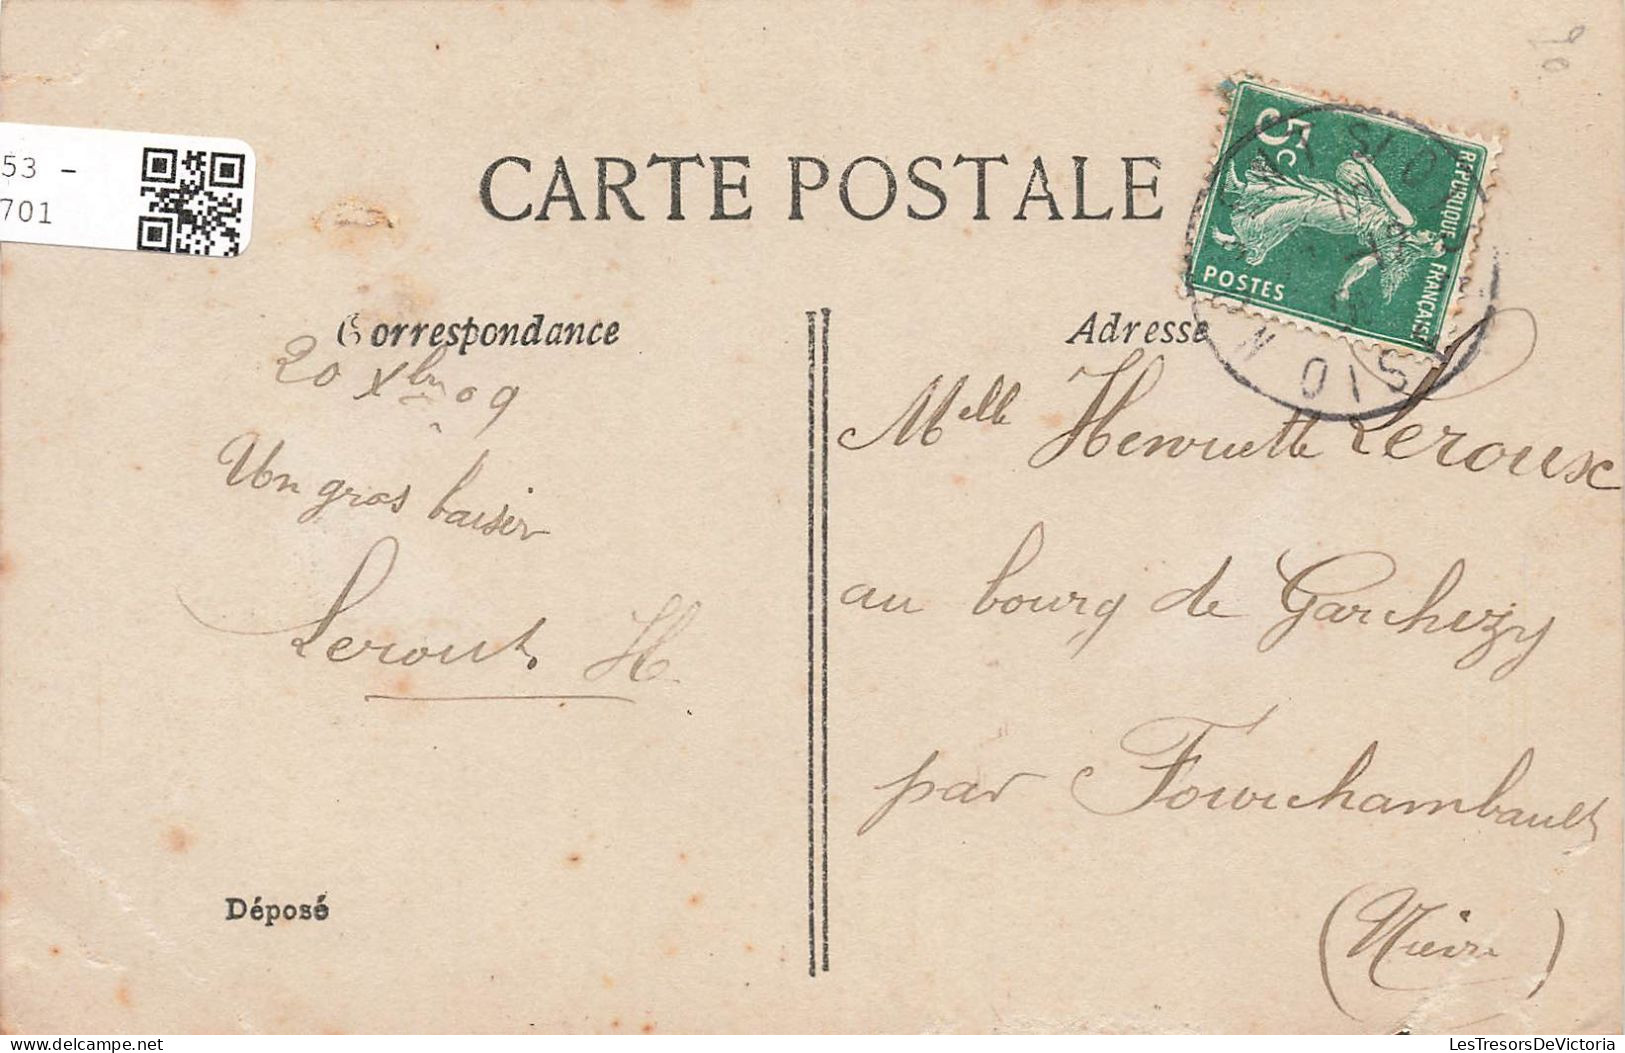 53 -
701
CARTE POSTALE
5c
RÉPUBLIQUE FRANÇAISE
POSTES
Correspondance
Adresse
20 Xbre 09
Un gros baiser
Leroux H
Melle Henriette Leroux
au bourg de Garchizy
par Fourchambault
(Nièvre)
Déposé
www.delcampe.net
LesTresorsDeVictoria